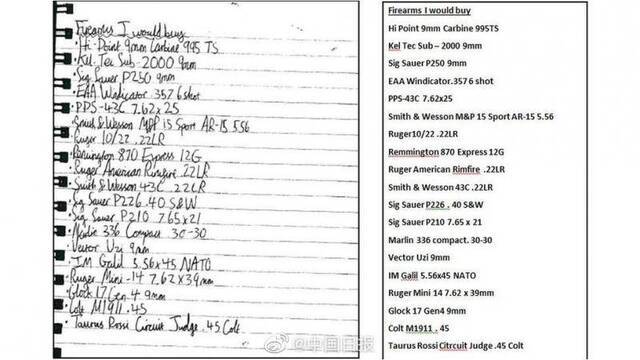 Firearms I would buy
· Hi-Point 9mm Carbine 995 TS
· Kel Tec Sub-2000 9mm
· Sig Sauer P250 9mm
· EAA Windicator .357 6 shot
· PPS-43C 7.62x25
· Smith & Wesson M&P 15 Sport AR-15 5.56
· Ruger 10/22 .22LR
· Remington 870 Express 12G
· Ruger American Rimfire .22LR
· Smith & Wesson 43C .22LR
· Sig Sauer P226 .40 S&W
· Sig Sauer P210 7.65x21
336 Compact 30-30
· Vector Uzi 9mm
· IM Galil 5.56x45 NATO
· Ruger Mini-14 7.62x39mm
· Glock 17 Gen 4 9mm
· Colt M1911 .45
· Taurus Rossi Circuit Judge .45 Colt
Firearms I would buy
Hi Point 9mm Carbine 995TS
Kel Tec Sub – 2000 9mm
Sig Sauer P250 9mm
EAA Windicator.357 6 shot
PPS-43C 7.62x25
Smith & Wesson M&P 15 Sport AR-15 5.56
Ruger10/22 .22LR
Remmington 870 Express 12G
Ruger American Rimfire .22LR
Smith & Wesson 43C .22LR
Sig Sauer P226 . 40 S&W
Sig Sauer P210 7.65 x 21
Marlin 336 compact. 30-30
Vector Uzi 9mm
IM Galil 5.56x45 NATO
Ruger Mini 14 7.62 x 39mm
Glock 17 Gen4 9mm
Colt M1911 . 45
Taurus Rossi Citrcuit Judge .45 Colt
@中国日报